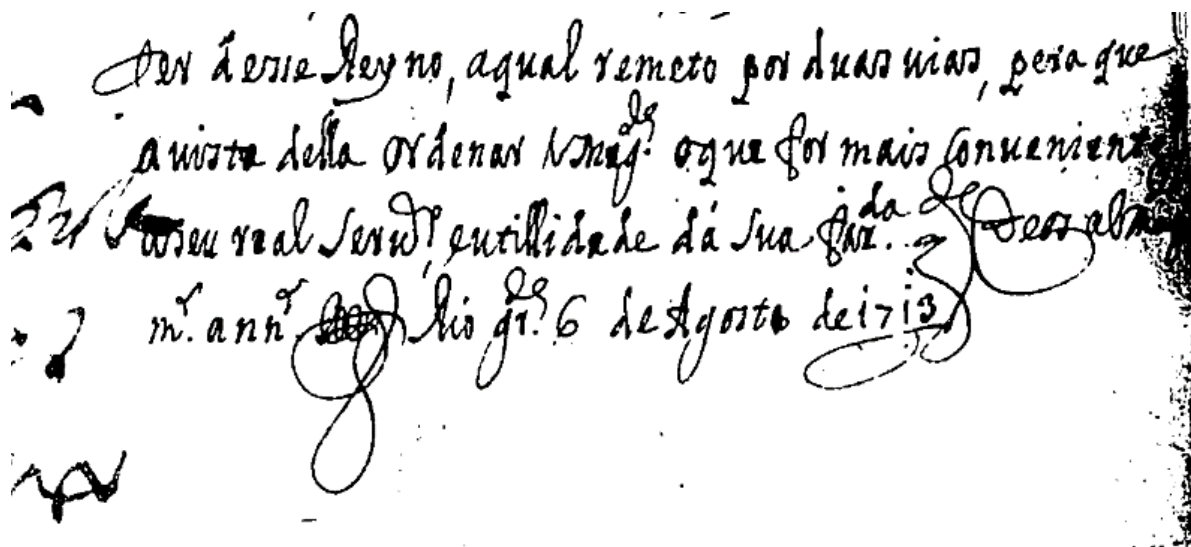 ter desse Reyno, aqual remeto por duas uias, pera que
auista della ordenar V Mag.de oque for mais conueniente
aoseu real Seru.o, eutillidade dá sua faz.da Deos
m.s ann.s Rio gr.de 6 de Agosto de 1713